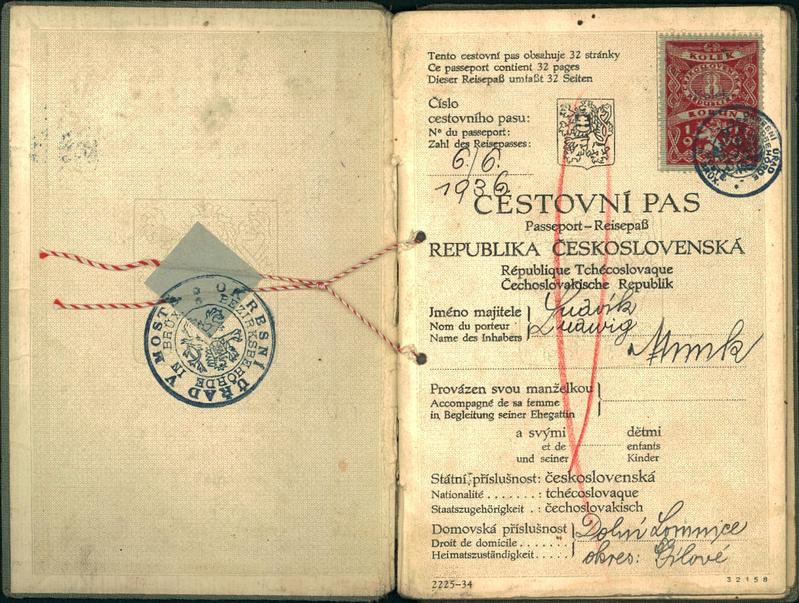 OKRESNÍ ÚŘAD V MOSTĚ
BEZIRKSBEHÖRDE IN BRÜX
Tento cestovní pas obsahuje 32 stránky
Ce passeport contient 32 pages
Dieser Reisepaß umfaßt 32 Seiten
KOLEK
KORUNA
Číslo
cestovního pasu:
Nº du passeport:
Zahl des Reisepasses:
6/6.
1936
CESTOVNÍ PAS
Passeport–Reisepaß
REPUBLIKA ČESKOSLOVENSKÁ
République Tchécoslovaque
Čechoslovakische Republik
Jméno majitele
Nom du porteur
Name des Inhabers
Ludvík
Ludwig
Munk
Provázen svou manželkou
Accompagné de sa femme
in Begleitung seiner Ehegattin
a svými dětmi
et de enfants
und seiner Kinder
Státní příslušnost: československá
Nationalité . . . . . . . : tchécoslovaque
Staatszugehörigkeit . : čechoslovakisch
Domovská příslušnost
Droit de domicile . . . . . . .
Heimatszuständigkeit . . . . .
Dolní Lomnice
okres:
2225–34
32158